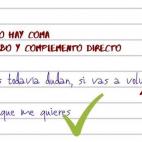 O HAY COMA
BO Y COMPLEMENTO DIRECTO
s todavía dudan, si vas a volv
que me quieres